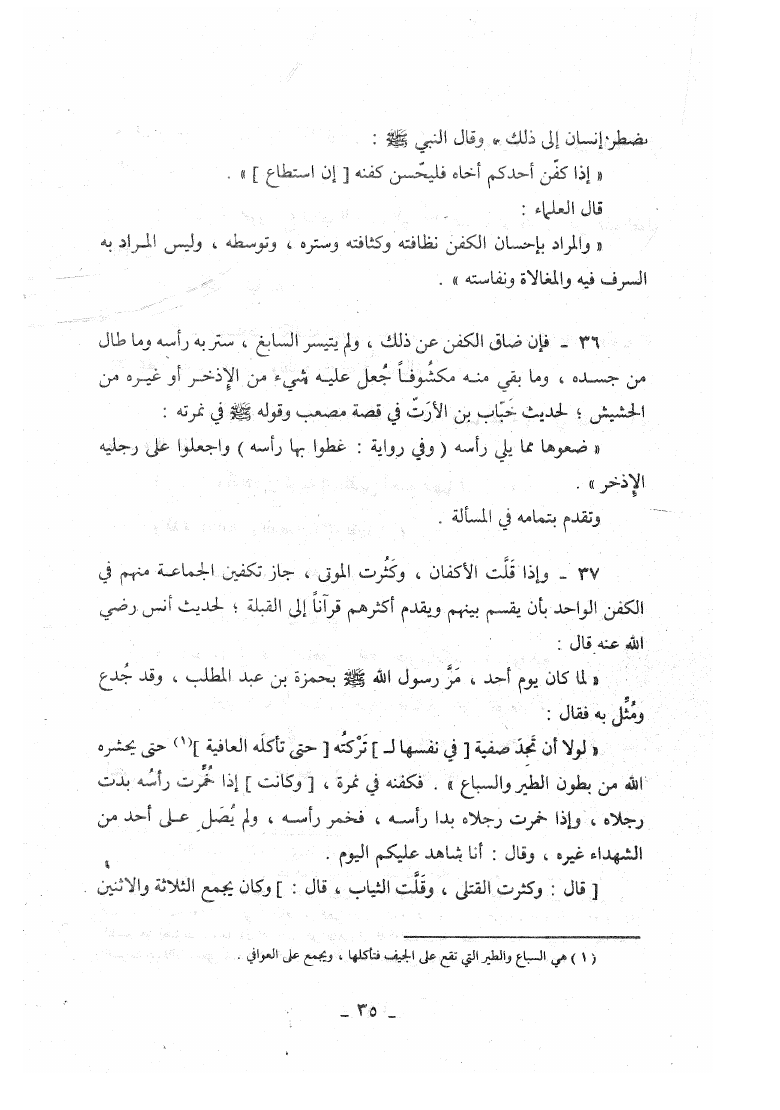 يضطر إنسان إلى ذلك » وقال النبي ﷺ :
« إذا كفّن أحدكم أخاه فليحّسن كفنه [ إن استطاع ] » .
قال العلماء :
« والمراد بإحسان الكفن نظافته وكثافته وستره ، وتوسطه ، وليس المراد به
السرف فيه والمغالاة ونفاسته » .
٣٦ - فإن ضاق الكفن عن ذلك ، ولم يتيسر السابغ ، ستر به رأسه وما طال
من جسده ، وما بقي منه مكشُوفاً جُعل عليه شيء من الإِذخر أو غيره من
الحشيش ؛ لحديث خَبّاب بن الأرَتّ في قصة مصعب وقوله ﷺ في نمرته :
« ضعوها مما يلي رأسه ( وفي رواية : غطوا بها رأسه ) واجعلوا على رجليه
الإِذخر » .
وتقدم بتمامه في المسألة .
٣٧ - وإذا قَلَّت الأكفان ، وكَثُرت الموتى ، جاز تكفين الجماعة منهم في
الكفن الواحد بأن يقسم بينهم ويقدم أكثرهم قرآناً إلى القبلة ؛ لحديث أنس رضي
الله عنه قال :
« لما كان يوم أحد ، مَرَّ رسول الله ﷺ بحمزة بن عبد المطلب ، وقد جُدع
ومُثِّل به فقال :
« لولا أن تَجِدَ صفية [ في نفسها لـ ] تَرْكتُه [ حتى تأكلَه العافية ](١) حتى يحشره
الله من بطون الطير والسباع » . فكفنه في نمرة ، [ وكانت ] إذا خُمِّرت رأسُه بدت
رجلاه ، وإذا خمرت رجلاه بدا رأسه ، فخمر رأسه ، ولم يُصَل على أحد من
الشهداء غيره ، وقال : أنا شاهد عليكم اليوم .
[ قال : وكثرت القتلى ، وقَلَّت الثياب ، قال : ] وكان يجمع الثلاثة والاثنين
( ١ ) هي السباع والطير التي تقع على الجيف فتأكلها ، ويجمع على العوافي .
- ٣٥ -